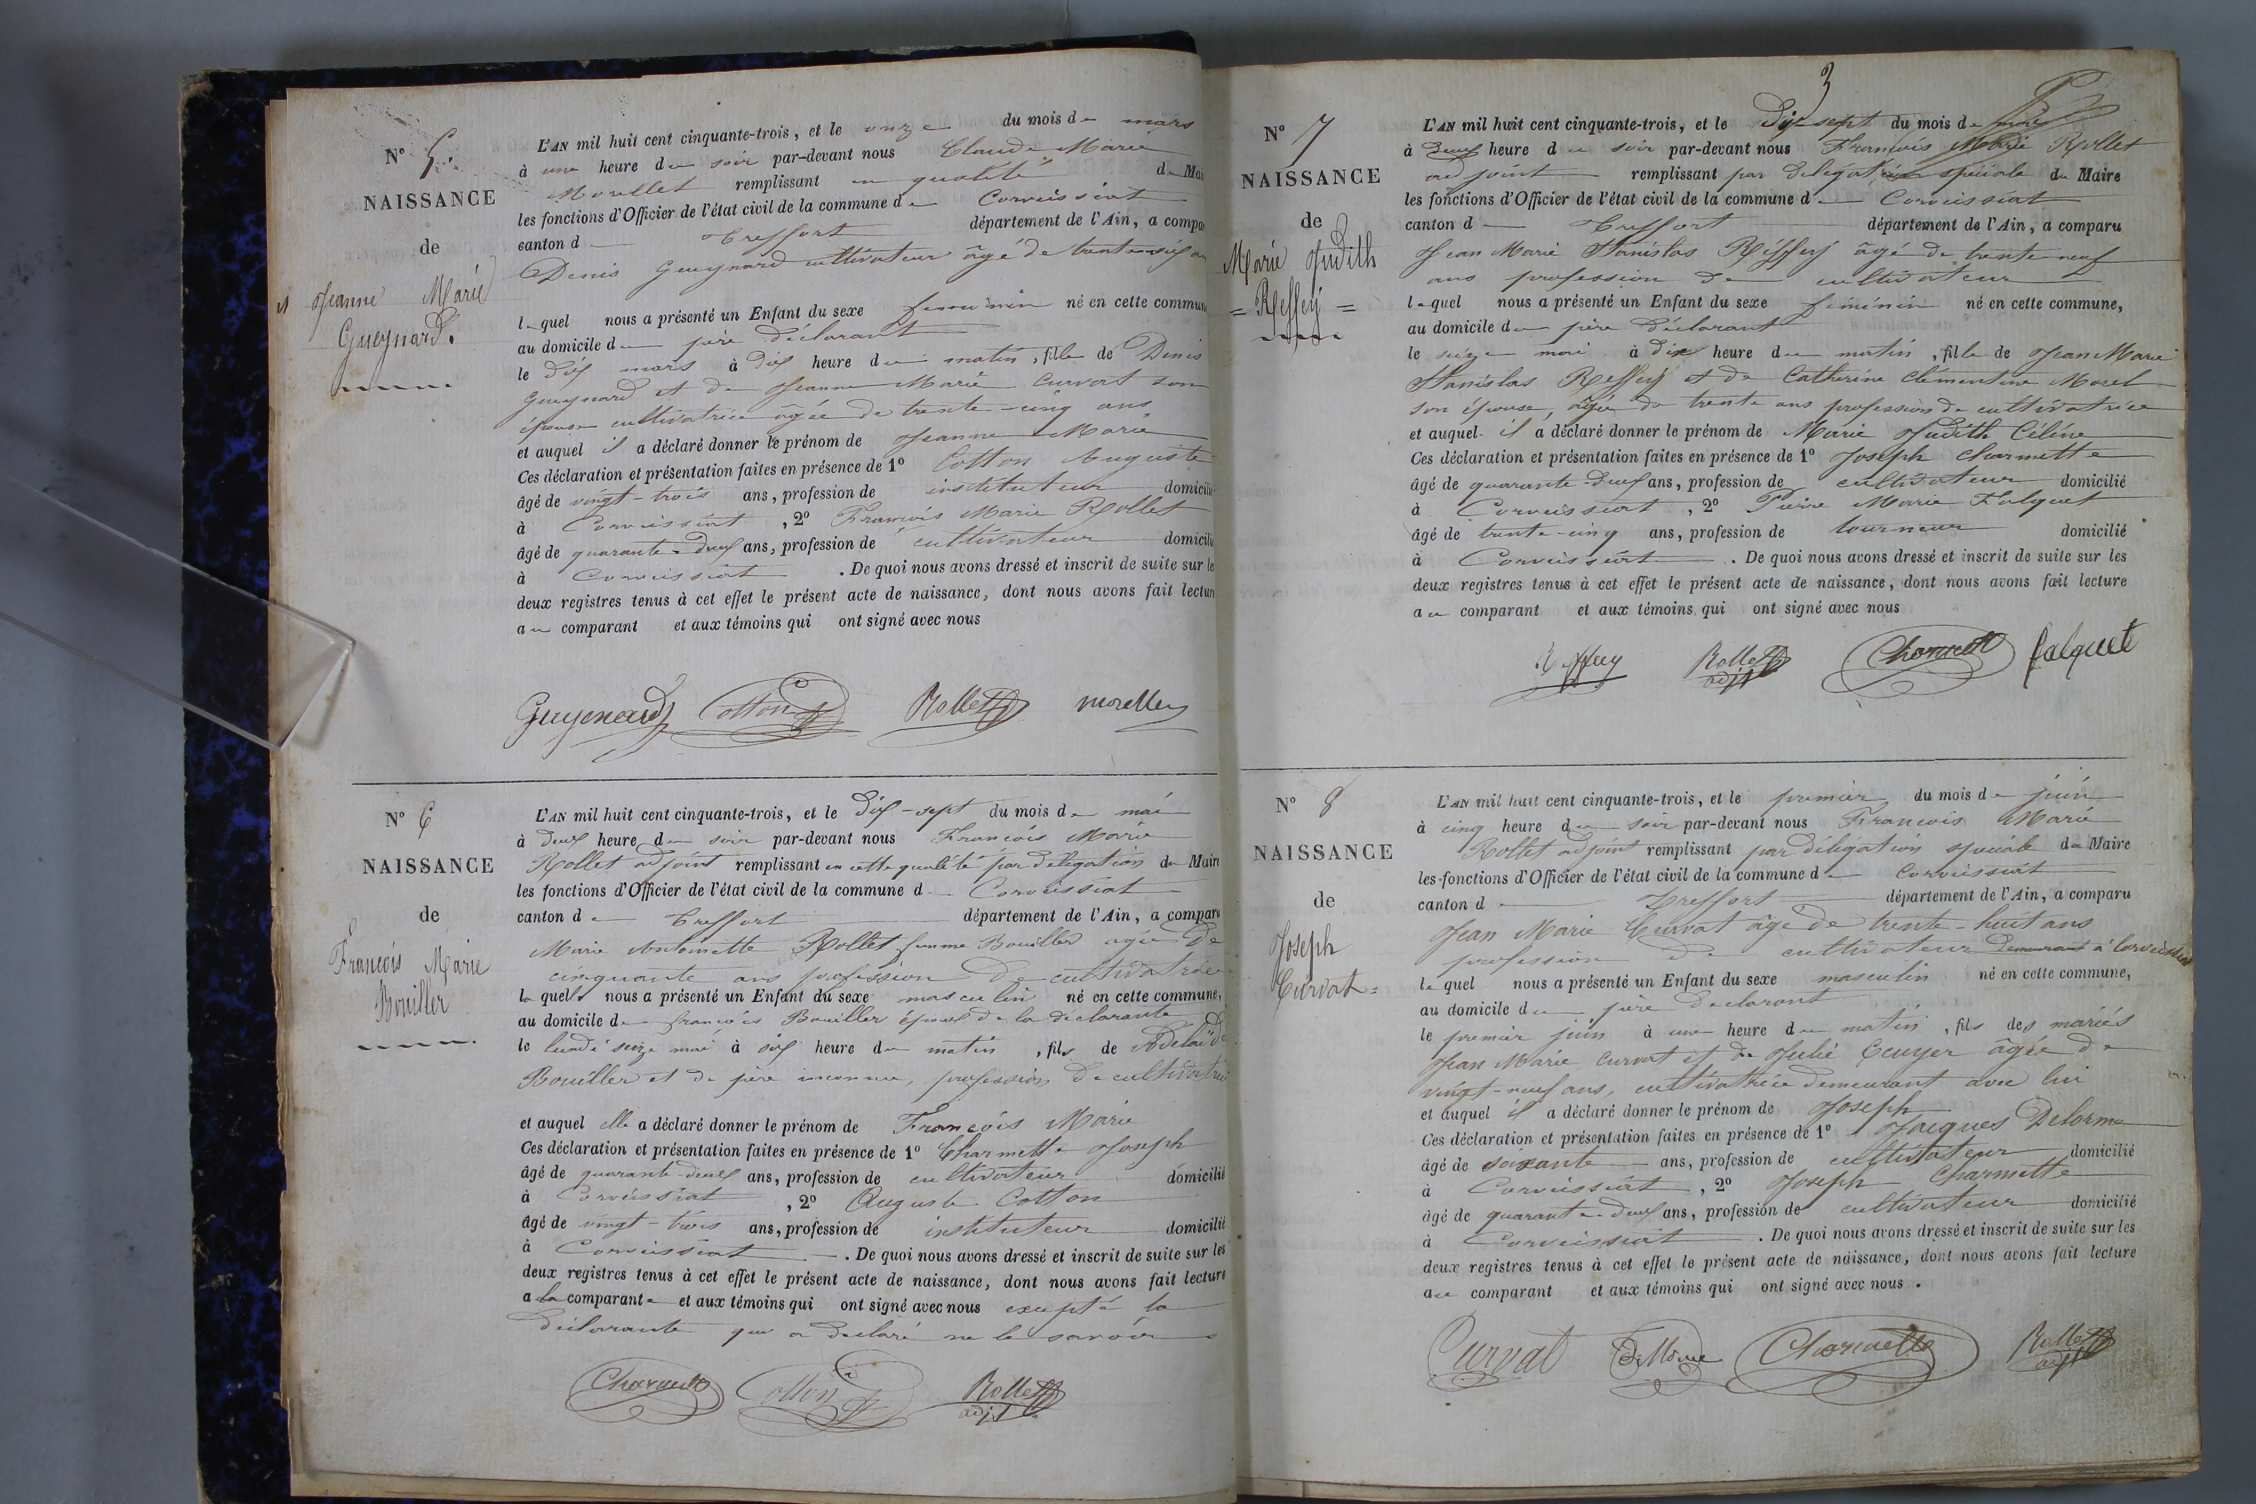 N° 5.
NAISSANCE
de
Jeanne Marie
Gueynard.
L'AN mil huit cent cinquante-trois, et le onze du mois de mars
à une heure du soir par-devant nous Claude Marie
Morellet remplissant en qualité de Mai
les fonctions d'Officier de l'état civil de la commune de Corveissiat
canton d Treffort département de l'Ain, a compa
Denis Gueynard cultivateur âgé de trente-six ans
lequel nous a présenté un Enfant du sexe feminin né en cette commune
au domicile du père déclarant
le dix mars à dix heure du matin, fille de Denis
Gueynard et de Jeanne Marie Curvat son
épouse cultivatrice âgée de trente-cinq ans
et auquel il a déclaré donner le prénom de Jeanne Marie
Ces déclaration et présentation faites en présence de 1° Cotton Auguste
âgé de vingt-trois ans, profession de instituteur domicilié
à Corveissiat, 2° François Marie Rollet
âgé de quarante-deux ans, profession de cultivateur domicilié
à Corveissiat. De quoi nous avons dressé et inscrit de suite sur le
deux registres tenus à cet effet le présent acte de naissance, dont nous avons fait lectur
au comparant et aux témoins qui ont signé avec nous
Gueynard Cotton Rollet morellet
N° 6
NAISSANCE
de
François Marie
Bouiller
L'AN mil huit cent cinquante-trois, et le dix-sept du mois de mai
à deux heure du soir par-devant nous François Marie
Rollet adjoint remplissant en cette qualité par délégation du Maire
les fonctions d'Officier de l'état civil de la commune d Corveissiat
canton de Treffort département de l'Ain, a comparu
Marie Antoinette Rollet femme Bouiller agée de
cinquante ans profession de cultivatrice
laquelle nous a présenté un Enfant du sexe masculin né en cette commune,
au domicile de françois Bouiller époux de la déclarante
le lundi seize mai à six heure du matin, fils de Adelaïde
Bouiller et de père inconnu, profession de cultivatrice
et auquel elle a déclaré donner le prénom de François Marie
Ces déclaration et présentation faites en présence de 1° Charmette Joseph
âgé de quarante deux ans, profession de cultivateur domicilié
à Corveissiat, 2° Auguste Cotton
âgé de vingt-trois ans, profession de instituteur domicilié
à Corveissiat. De quoi nous avons dressé et inscrit de suite sur les
deux registres tenus à cet effet le présent acte de naissance, dont nous avons fait lecture
a la comparante et aux témoins qui ont signé avec nous excepté la
déclarante qui a déclaré ne le savoir
Charmette Cotton Rollet
adjt
3
N° 7
NAISSANCE
de
Marie Judith
= Reffey =
L'AN mil huit cent cinquante-trois, et le Dix-sept du mois de mai
à deux heure du soir par-devant nous François Marie Rollet
adjoint remplissant par délégation spéciale du Maire
les fonctions d'Officier de l'état civil de la commune d Corveissiat
canton d Treffort département de l'Ain, a comparu
Jean Marie Stanislas Reffey âgé de trente neuf
ans profession de cultivateur
lequel nous a présenté un Enfant du sexe féminin né en cette commune,
au domicile du père déclarant
le seize mai à dix heure du matin, fille de Jean Marie
Stanislas Reffey et de Catherine Clémentine Morel
son épouse, âgée de trente ans profession de cultivatrice
et auquel il a déclaré donner le prénom de Marie Judith Céline
Ces déclaration et présentation faites en présence de 1° Joseph Charmette
âgé de quarante-deux ans, profession de cultivateur domicilié
à Corveissiat, 2° Pierre Marie Falquet
âgé de trente-cinq ans, profession de tourneur domicilié
à Corveissiat. De quoi nous avons dressé et inscrit de suite sur les
deux registres tenus à cet effet le présent acte de naissance, dont nous avons fait lecture
au comparant et aux témoins qui ont signé avec nous
Reffey Rollet Charmette falquet
adjt
N° 8
NAISSANCE
de
Joseph
Curvat =
L'AN mil huit cent cinquante-trois, et le premier du mois de juin
à cinq heure du soir par-devant nous François Marie
Rollet adjoint remplissant par délégation spéciale du Maire
les fonctions d'Officier de l'état civil de la commune d Corveissiat
canton d Treffort département de l'Ain, a comparu
Jean Marie Curvat âgé de trente-huit ans
profession de cultivateur demeurant à Corveissiat
lequel nous a présenté un Enfant du sexe masculin né en cette commune,
au domicile du père déclarant
le premier juin à une heure du matin, fils des mariés
Jean Marie Curvat et de Julie Ecuyer âgée de
vingt-neuf ans, cultivatrice demeurant avec lui
et auquel il a déclaré donner le prénom de Joseph
Ces déclaration et présentation faites en présence de 1° Jacques Delorme
âgé de soixante ans, profession de cultivateur domicilié
à Corveissiat, 2° Joseph Charmette
âgé de quarante-deux ans, profession de cultivateur domicilié
à Corveissiat. De quoi nous avons dressé et inscrit de suite sur les
deux registres tenus à cet effet le présent acte de naissance, dont nous avons fait lecture
au comparant et aux témoins qui ont signé avec nous.
Curvat Charmette Rollet
adjt